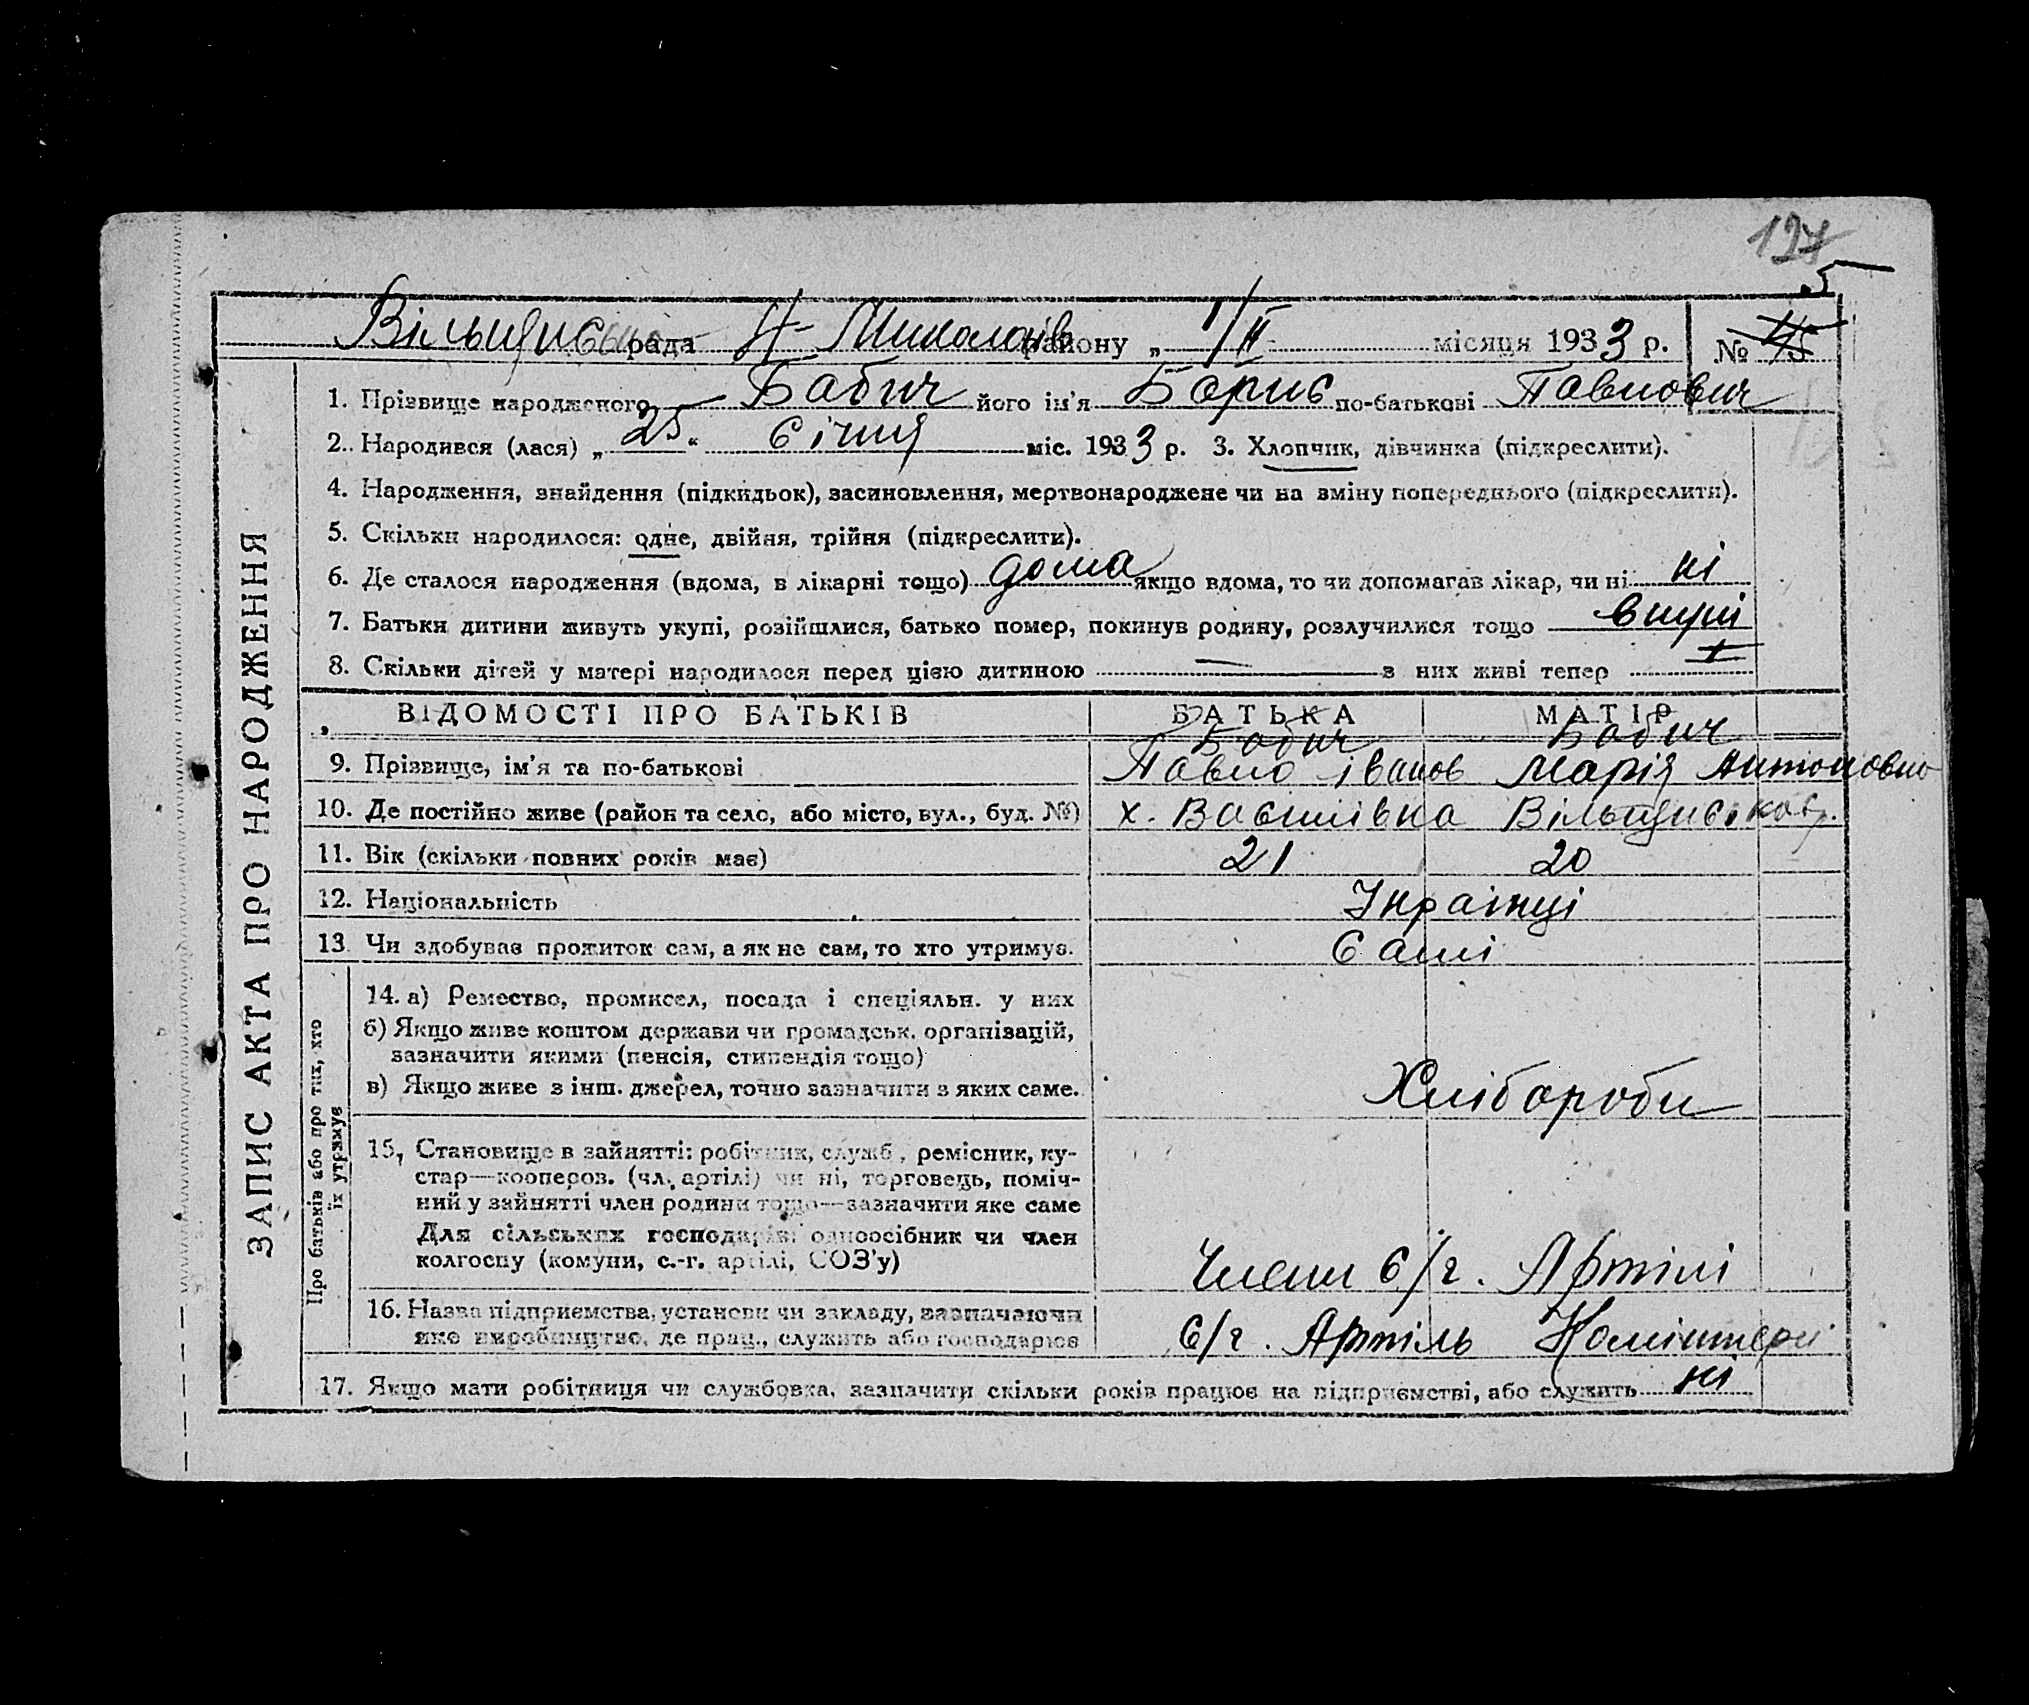 127
5
Вільщинсь рада Н-Миколаїв району „ 1/II місяця 1933 р. № 45
1. Прізвище народженого Бабич його ім'я Борис по-батькові Павлович
2. Народився (лася) „ 25 “ Січня міс. 1933 р. 3. Хлопчик, дівчинка (підкреслити).
4. Народження, знайдення (підкидьок), засиновлення, мертвонароджене чи на зміну попереднього (підкреслити).
5. Скільки народилося: одне, двійня, трійня (підкреслити).
6. Де сталося народження (вдома, в лікарні тощо) дома якщо вдома, то чи допомагав лікар, чи ні ні
7. Батьки дитини живуть укупі, розійшлися, батько помер, покинув родину, розлучилися тощо вкупі
8. Скільки дітей у матері народилося перед цією дитиною — з них живі тепер
ВІДОМОСТІ ПРО БАТЬКІВ БАТЬКА МАТІР
Бабич Бабич
9. Прізвище, ім'я та по-батькові Павло Іванов Марія Антоновно
10. Де постійно живе (район та село, або місто, вул., буд. №) х. Василівка Вільщинс.
11. Вік (скільки повних років має) 21 20
12. Національність Українці
13. Чи здобував прожиток сам, а як не сам, то хто утримує. Самі
14. а) Ремество, промисел, посада і спеціяльн. у них
б) Якщо живе коштом держави чи громадськ. організацій,
зазначити якими (пенсія, стипендія тощо)
в) Якщо живе з інш. джерел, точно зазначити з яких саме. Хлібороби
15, Становище в зайнятті: робітник, служб., ремісник, ку-
стар—кооперов. (чл. артілі) чи ні, торговець, поміч-
ний у зайнятті член родини тощо—зазначити яке саме
Для сільських господарів: одноосібник чи член
колгоспу (комуни, с.-г. артілі, СОЗ'у) Члени с/г. Артілі
16. Назва підприємства, установи чи закладу, зазначаючи
яке виробництво, де прац., служить або господарює с/г. Артіль Комінтерн
17. Якщо мати робітниця чи службовка, зазначити скільки років працює на підприємстві, або служить ні
ЗАПИС АКТА ПРО НАРОДЖЕННЯ
Про батьків або про тих, хто
їх утримує